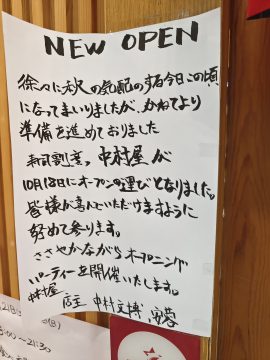 NEW OPEN
徐々に秋の気配のする今日この頃
になってまいりましたが、かねてより
準備を進めておりました
寿司割烹、中村屋が
10月18日にオープンの運びとなりました。
皆様が喜んでいただけますように
努めて参ります。
ささやかながらオープニング
パーティーを開催いたします。
店主 中村文博